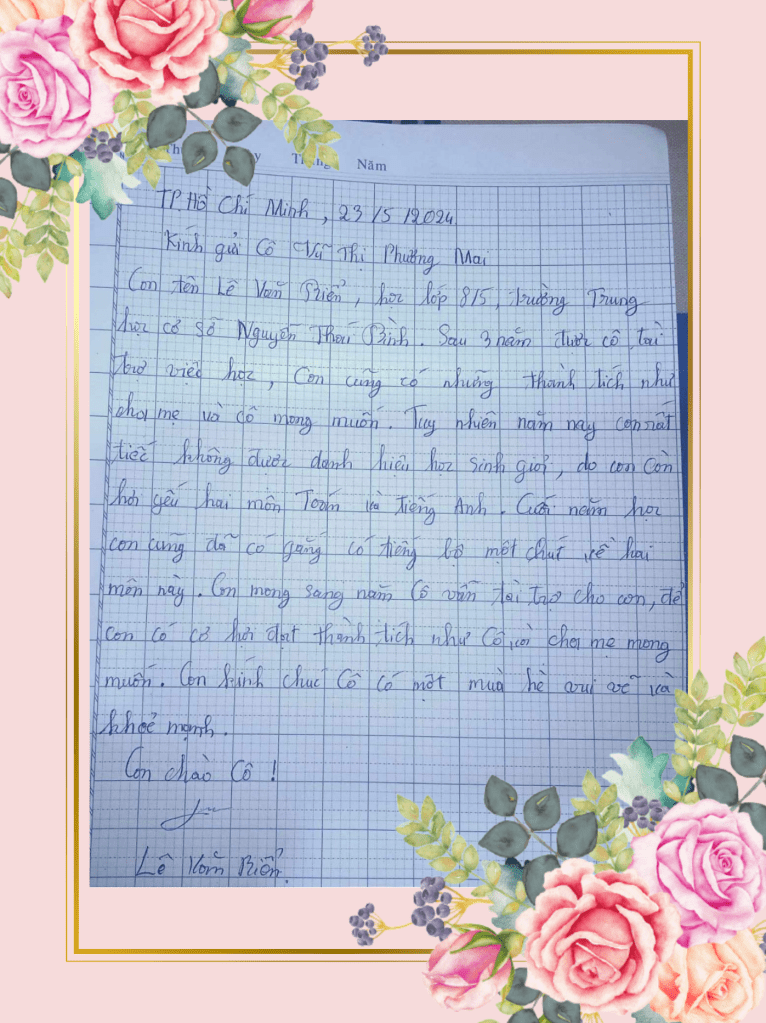 Năm
TP. Hồ Chí Minh, 23/5/2024
Kính gửi Cô Vũ Thị Phương Mai
Con tên Lê Văn Biển, học lớp 8/5, trường Trung
học cơ sở Nguyễn Thái Bình. Sau 3 năm được cô tài
trợ việc học, Con cũng có những thành tích như
cha mẹ và cô mong muốn. Tuy nhiên năm nay con rất
tiếc không được danh hiệu học sinh giỏi, do con còn
hơi yếu hai môn Toán và Tiếng Anh. Cuối năm học
con cũng đã cố gắng có tiếng bộ một chút về hai
môn này. Con mong sang năm Cô vẫn tài trợ cho con, để
con có cơ hội đạt thành tích như Cô và cha mẹ mong
muốn. Con kính chúc Cô có một muà hè vui vẽ và
khoẻ mạnh.
Con chào Cô !
Lê Văn Biển.